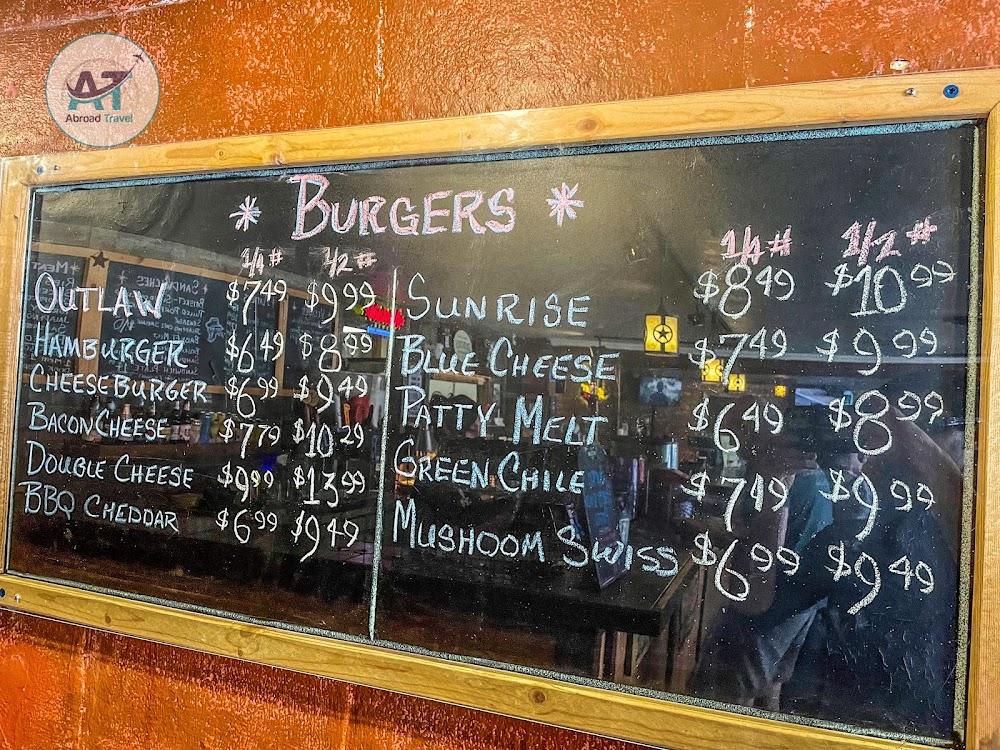 AT
Abroad Travel
* BURGERS *
1/4# 1/2#
OUTLAW $7.49 $9.99
HAMBURGER $6.49 $8.99
CHEESEBURGER $6.99 $9.49
BACON CHEESE $7.79 $10.29
DOUBLE CHEESE $9.99 $13.99
BBQ CHEDDAR $6.99 $9.49
1/4# 1/2#
SUNRISE $8.49 $10.99
BLUE CHEESE $7.49 $9.99
PATTY MELT $6.49 $8.99
GREEN CHILE $7.49 $9.99
MUSHOOM SWISS $6.99 $9.49